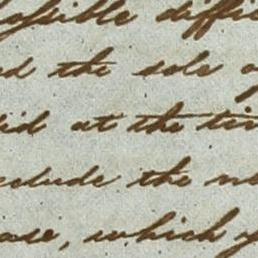 possible diffic
ed the sole o
did at the tim
nclude the ne
ase, which y